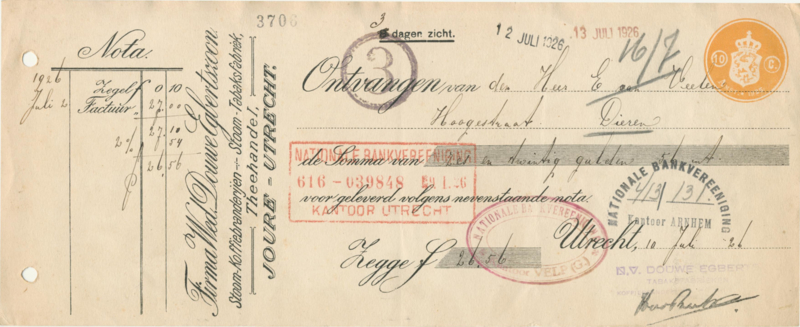 3706
3
dagen zicht.
12 JULI 1926
13 JULI 1926
16/7
10 C.
3
Nota.
1926
Zegel f 0 10
Juli 2 Factuur 27.00
27.10
2% 54
f 26,56
Firma Wed. Douwe Egbertszoon
Stoom-Koffiebranderijen — Stoom-Tabaksfabriek,
Theehandel,
JOURE - UTRECHT.
Ontvangen van den Heer E. van
Hoogestraat Dieren
de Somma van en twintig gulden 56 ct.
NATIONALE BANKVEREENIGING
616-039848
KANTOOR UTRECHT
voor geleverd volgens nevenstaande nota.
NATIONALE BANKVEREENIGING
Kantoor ARNHEM
NATIONALE BANKVEREENIGING
VELP (G.)
Utrecht, 10 Juli 26
Zegge f 26,56
DOUWE EGBER